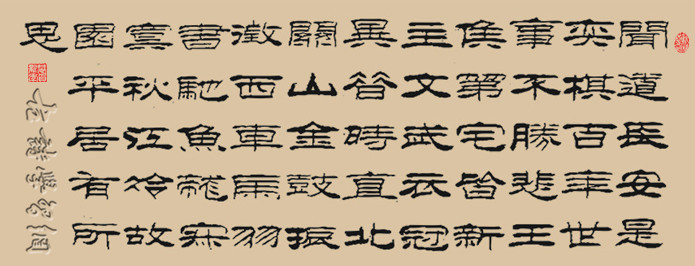 聞道長安是
奕棋百年世
事不勝悲王
侯第宅皆新
主文武衣冠
異昔時直北
關山金鼓振
徵西車馬羽
書馳魚龍寂
寞秋江冷故
國平居有所
思